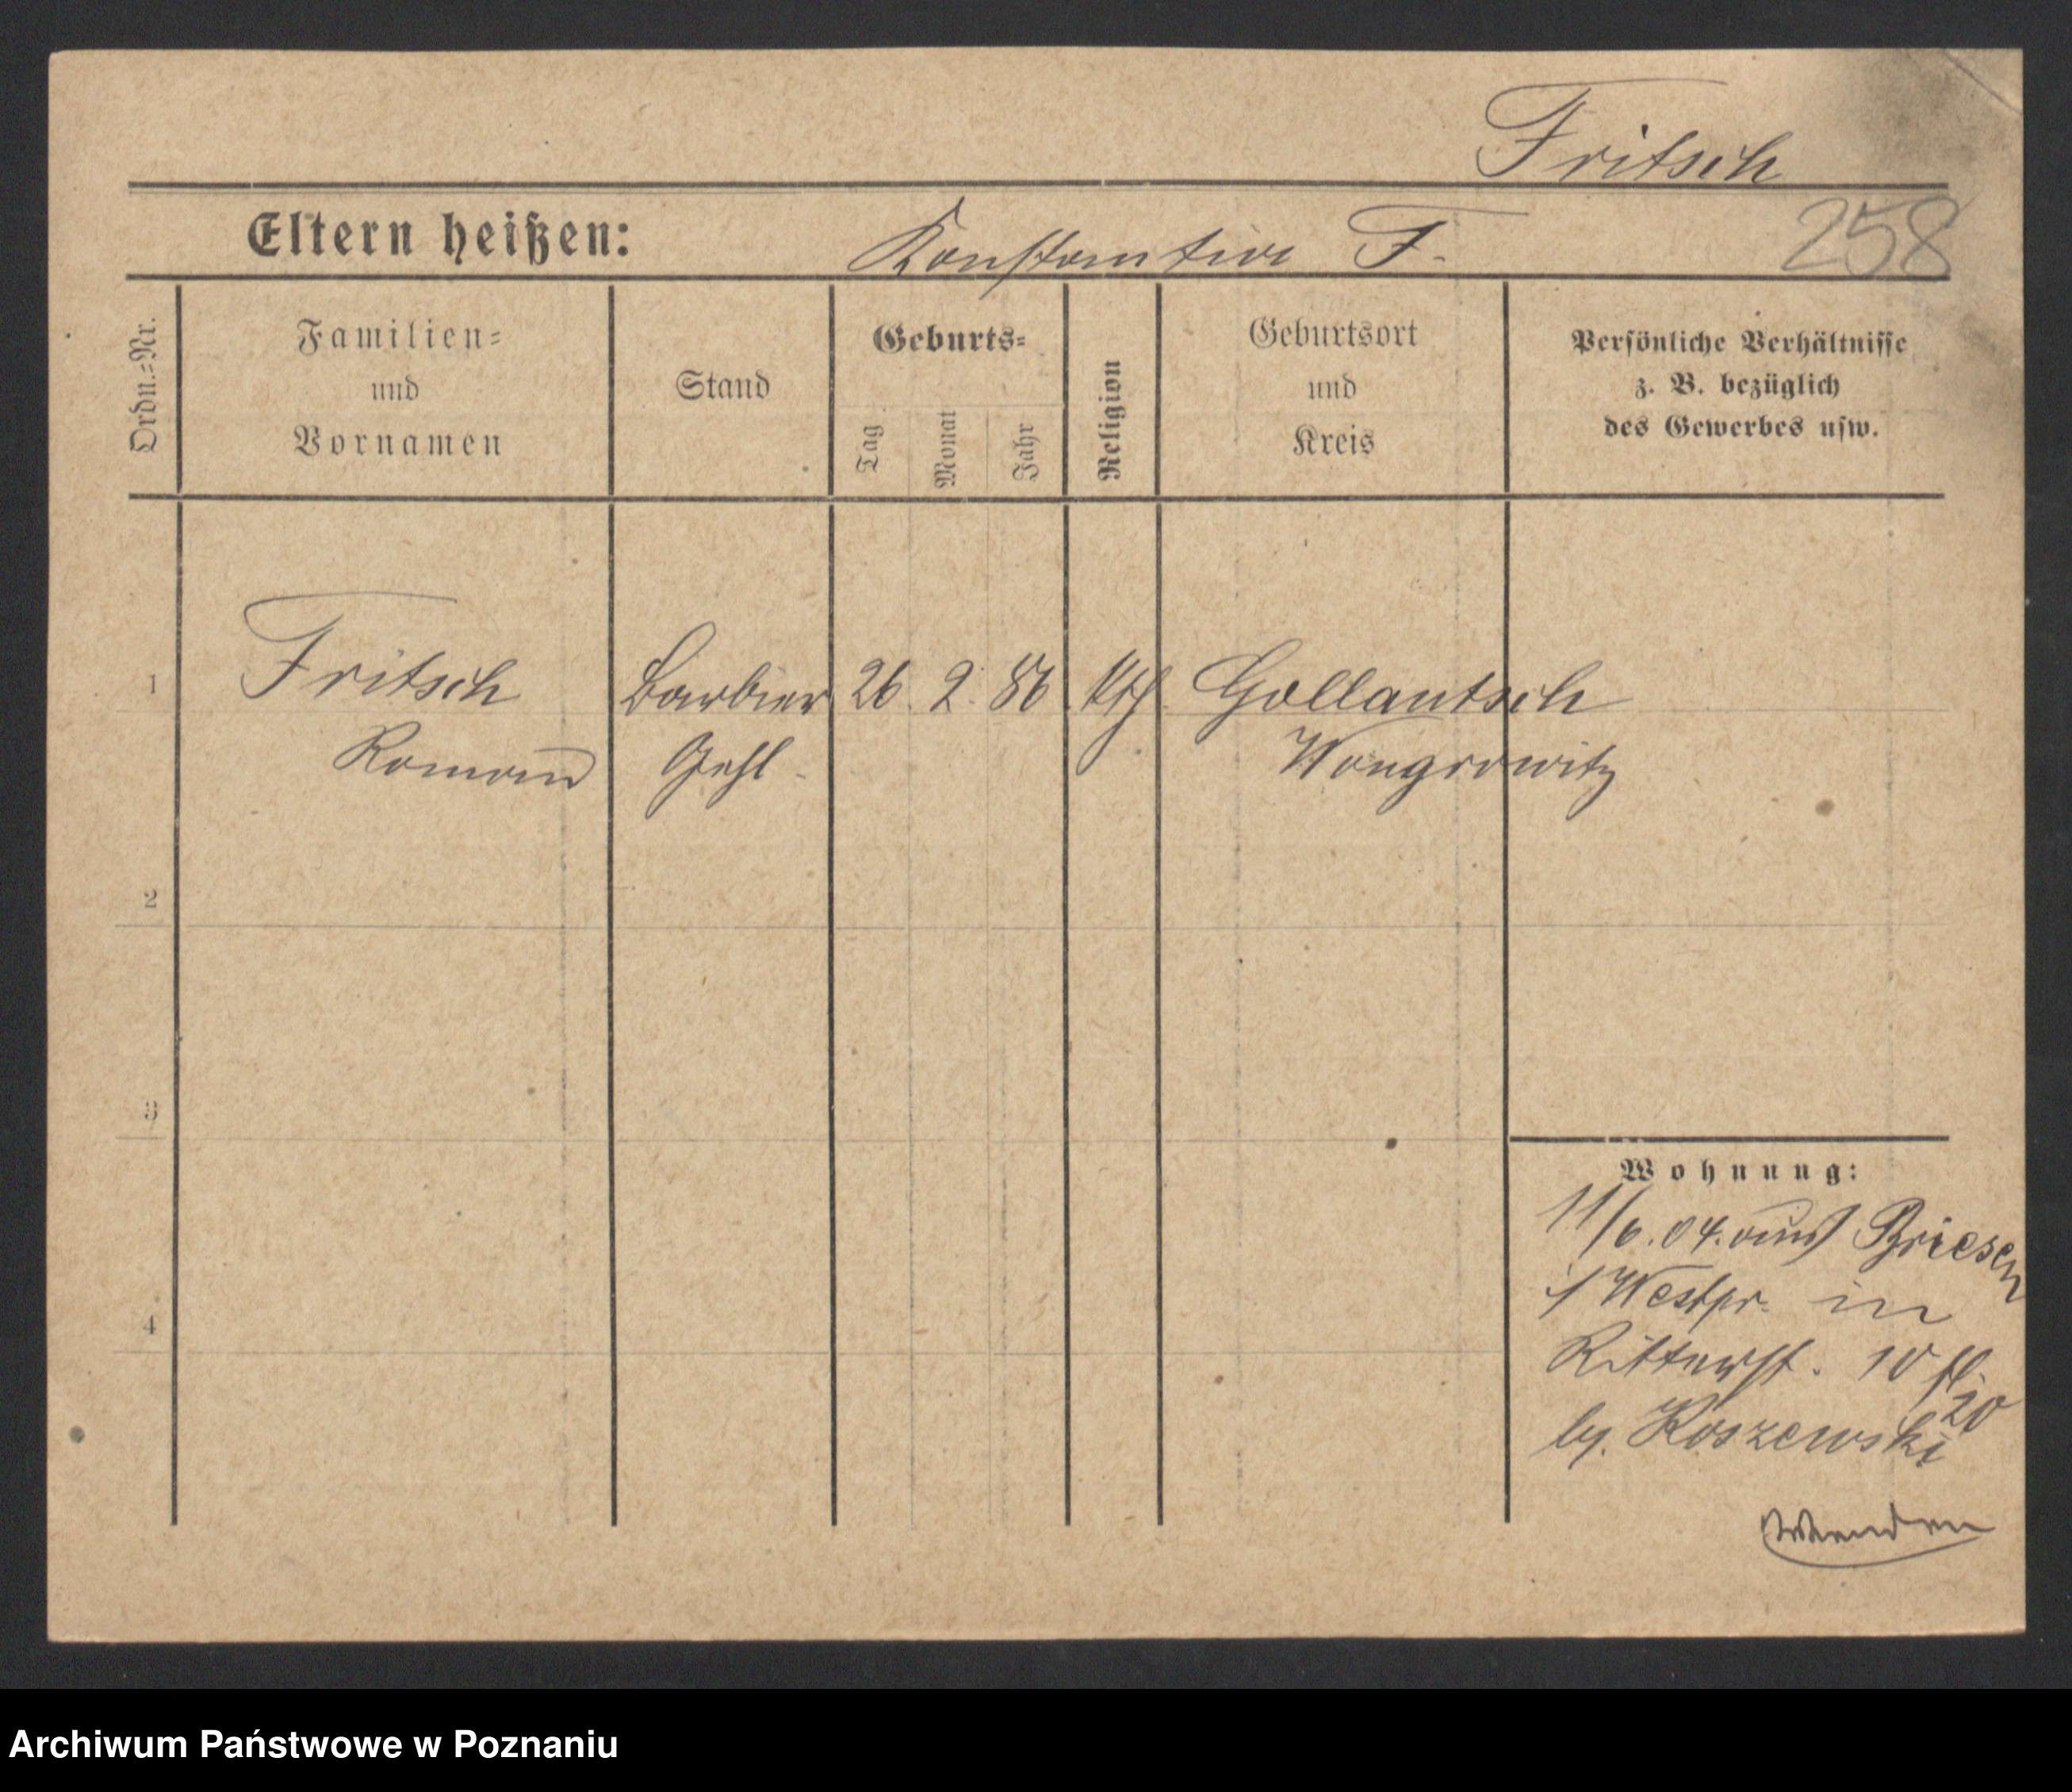 Fritsch
Eltern heißen: Konstantin F.
258
Ordn.-Nr.
Familien-
und
Vornamen
Stand
Geburts-
Tag
Monat
Jahr
Religion
Geburtsort
und
Kreis
Persönliche Verhältnisse
z. B. bezüglich
des Gewerbes usw.
1 Fritsch Barbier 26. 2. 86 kth Gollantsch
Roman Gehl. Wongrowitz
2
3
4
Wohnung:
11/6. 04. aus Briesen
i/ Westpr. in
Ritterst. 10
20
by. Koszewski
Wenden
Archiwum Państwowe w Poznaniu